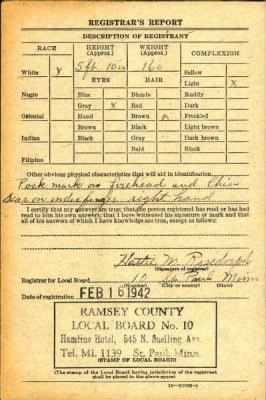 REGISTRAR'S REPORT
DESCRIPTION OF REGISTRANT
RACE HEIGHT (Approx.) WEIGHT (Approx.) COMPLEXION
5 ft 10 in 160
White X Sallow
EYES HAIR Light X
Negro Blue Blonde Ruddy
Gray X Red Dark
Oriental Hazel Brown Freckled
Brown Black Light brown
Indian Black Gray Dark brown
Bald Black
Filipino
Other obvious physical characteristics that will aid in identification
Pock mark on forehead and Chin
Scar on index finger right hand
I certify that my answers are true; that the person registered has read or has had
read to him his own answers; that I have witnessed his signature or mark and that
all of his answers of which I have knowledge are true, except as follows:
Hattie M.
(Signature of registrar)
Registrar for Local Board 10 St. Paul Minn
(Number) (City or county) (State)
Date of registration FEB 16 1942
RAMSEY COUNTY
LOCAL BOARD No. 10
Hamline Hotel, 545 N. Snelling Ave.
Tel. MI. 1139 St. Paul, Minn.
(STAMP OF LOCAL BOARD)
(The stamp of the Local Board having jurisdiction of the registrant
shall be placed in the above space.)